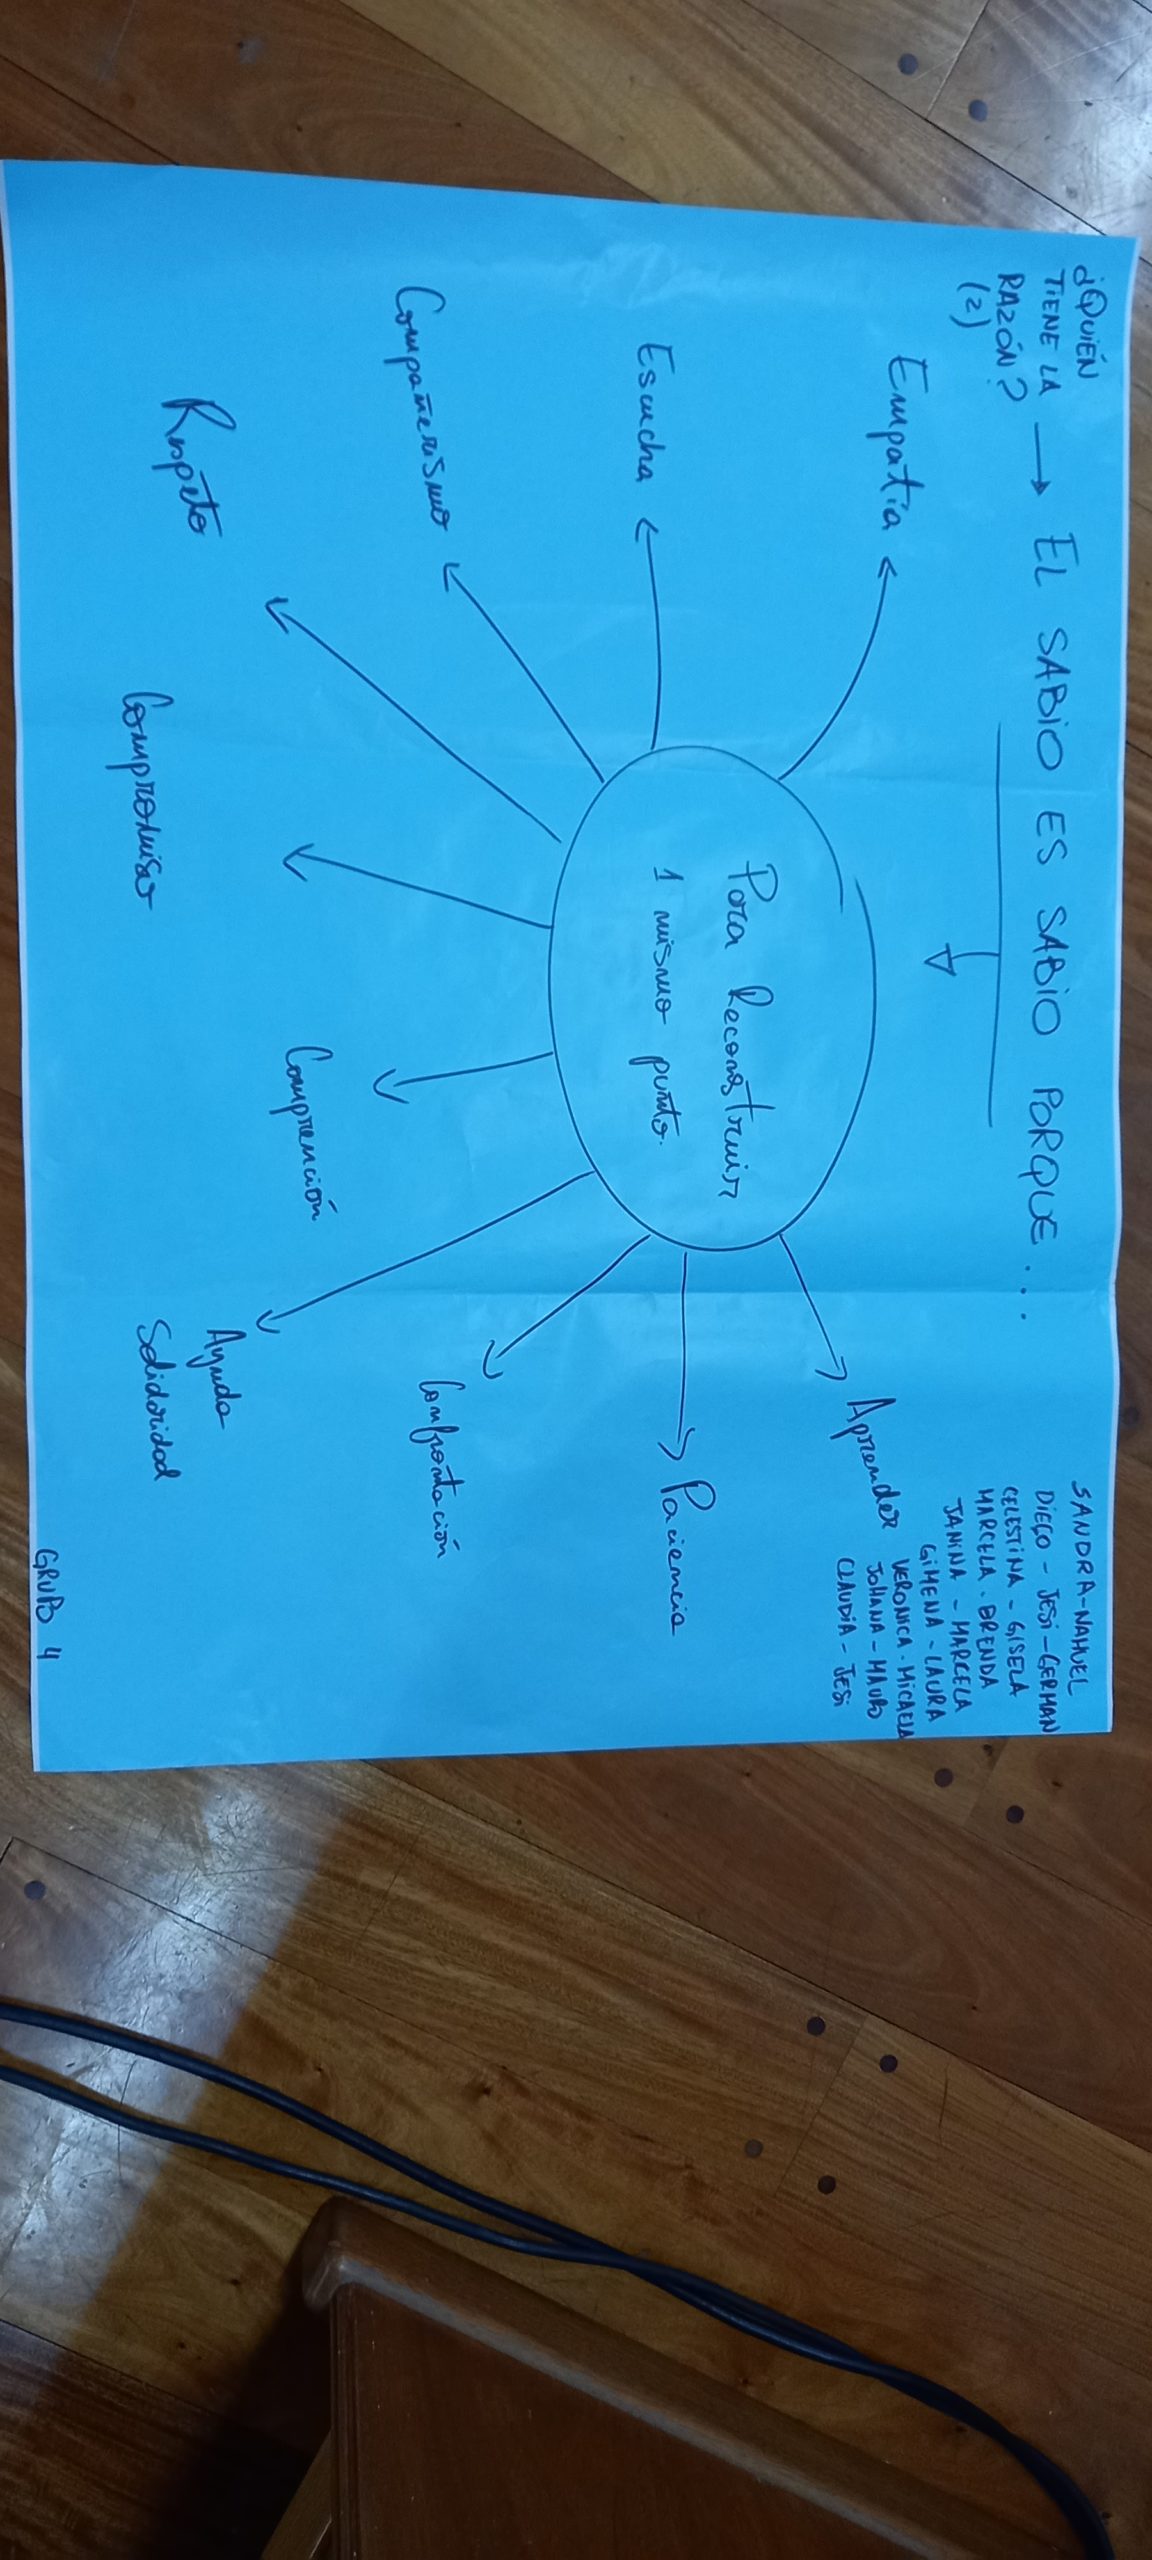 ¿QUIÉN
TIENE LA → EL SABIO ES SABIO PORQUE...
RAZÓN?
(2)
SANDRA-NAHUEL
DIEGO - JESI - GERMAN
CELESTINA - GISELA
MARCELA - BRENDA
JANINA - MARCELA
GIMENA - LAURA
VERONICA - MICAELA
JOHANA - MAURO
CLAUDIA - JESI
Para Reconstruir
1 mismo punto.
Empatía
Escucha
Compañerismo
Respeto
Compromiso
Comprención
Ayuda
Solidaridad
Confrontación
Paciencia
Aprender
GRUPO 4